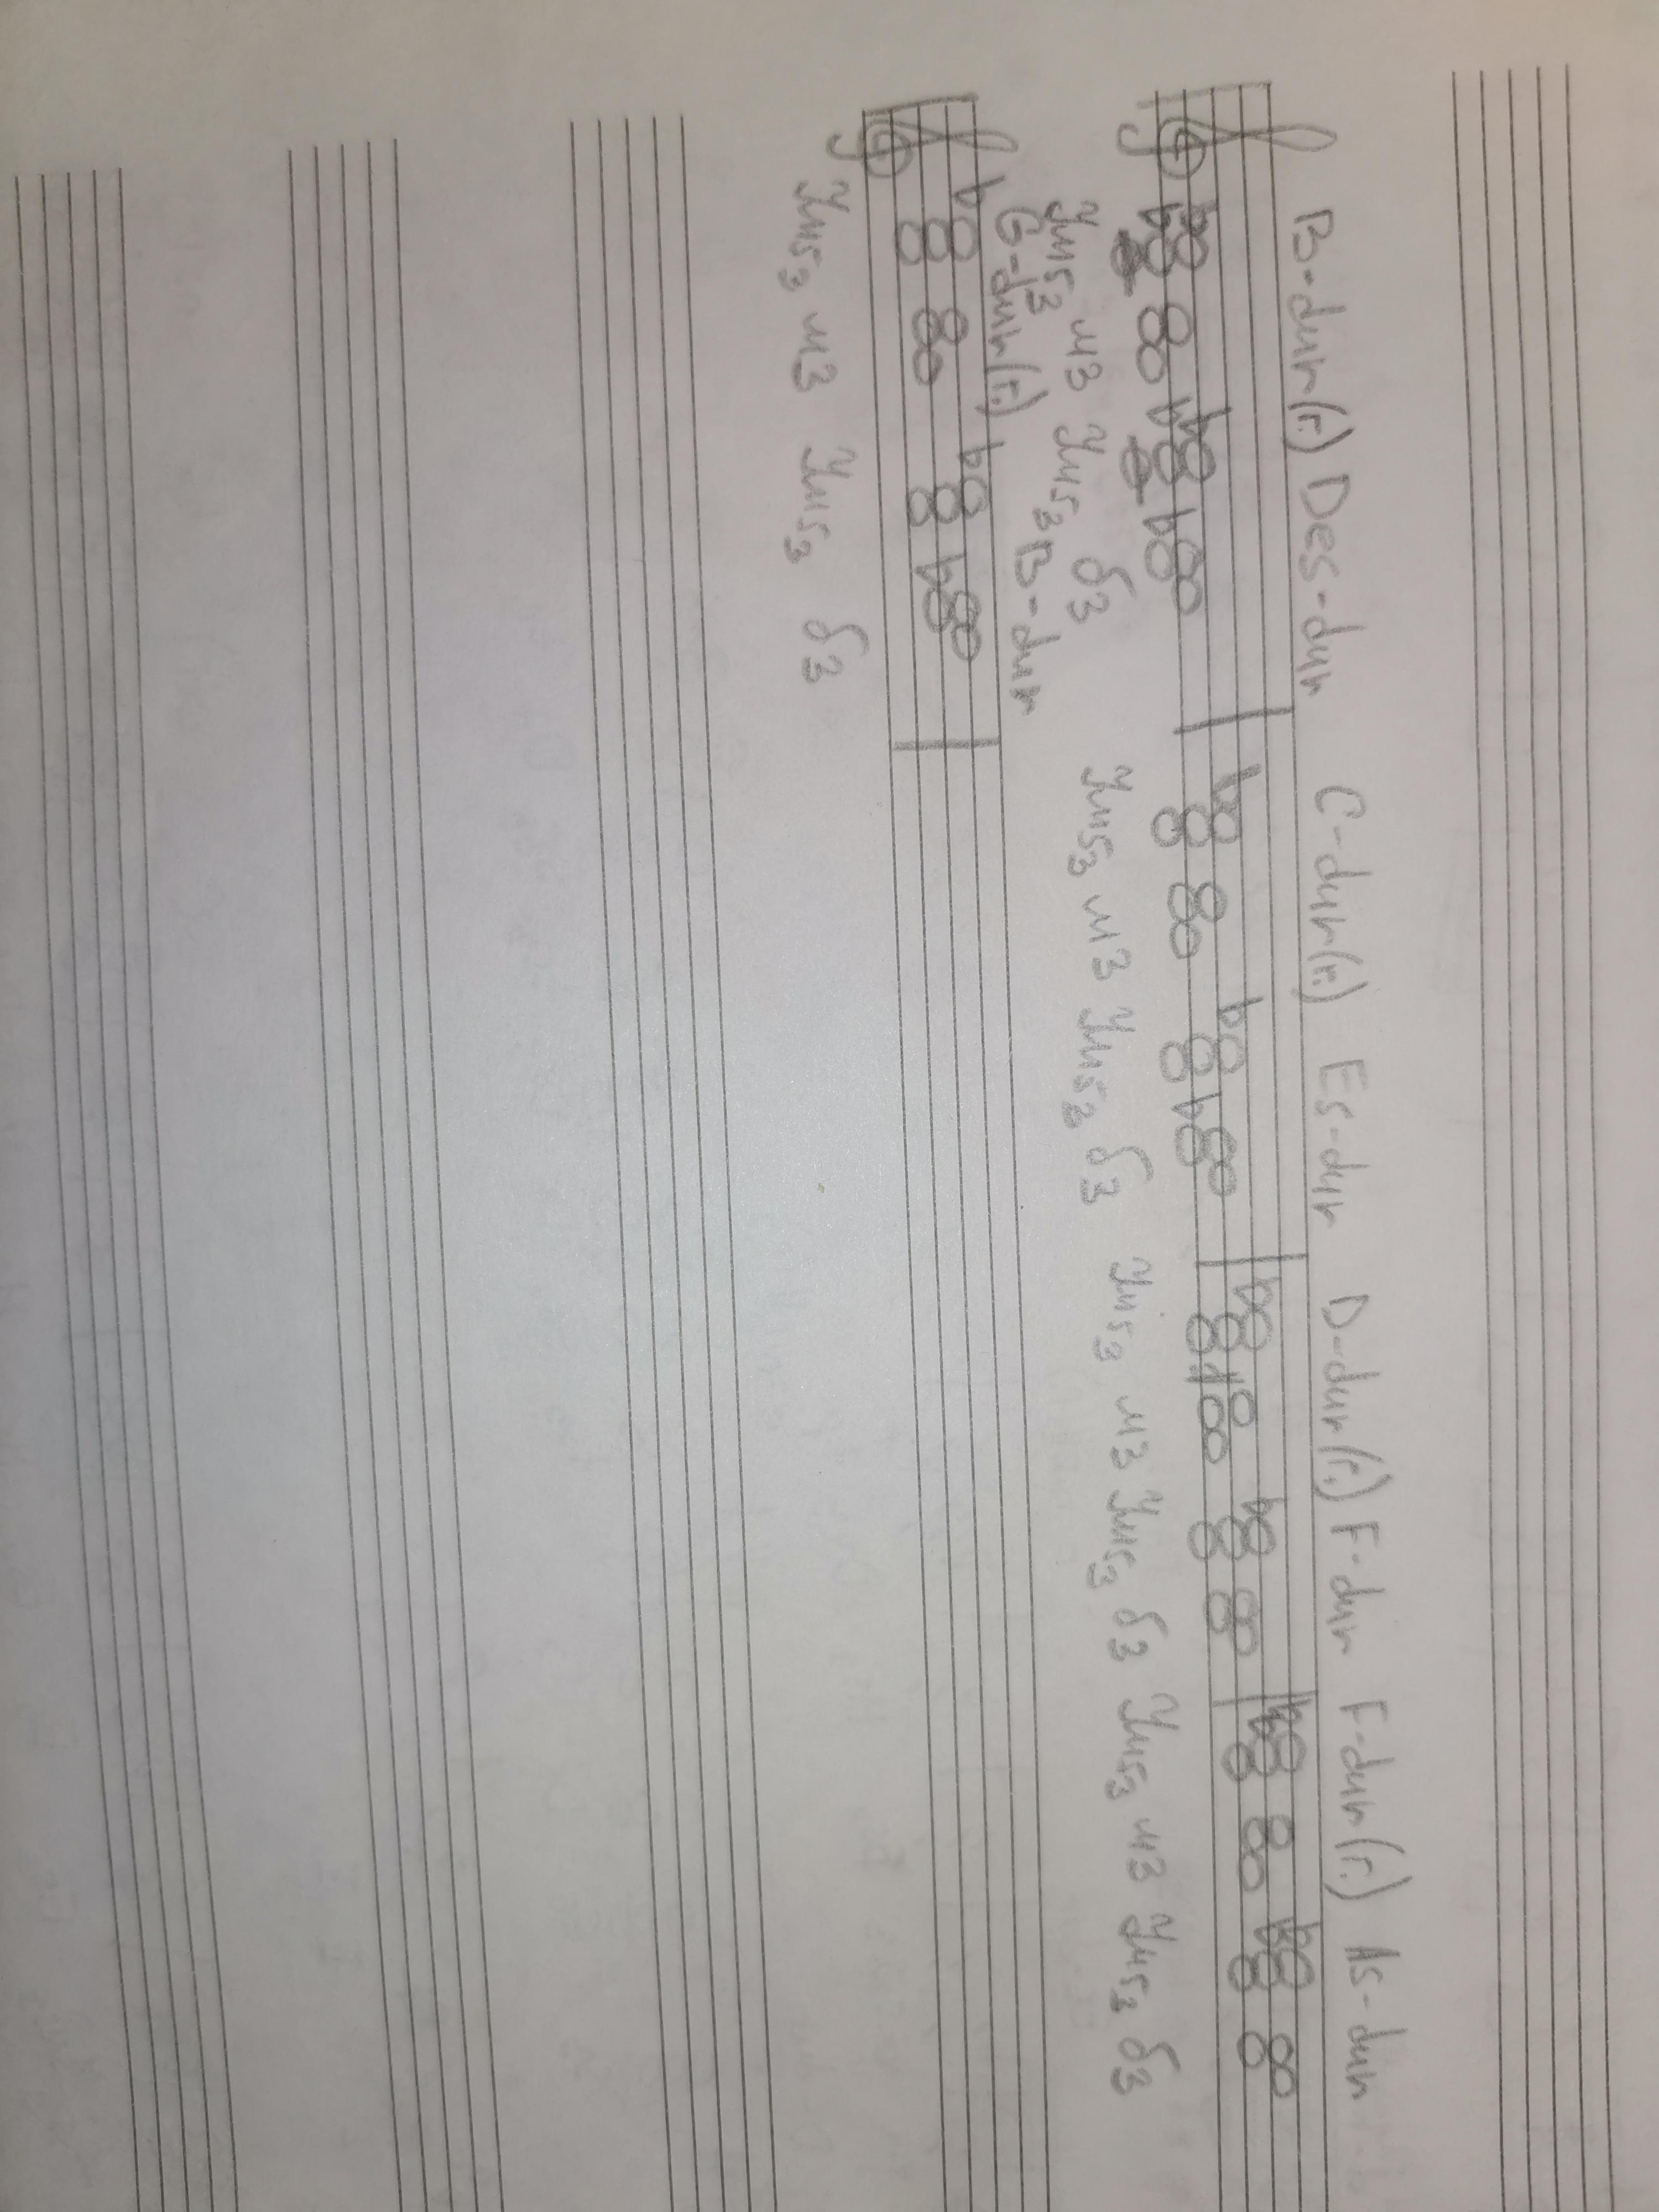 B-dur(г.) Des-dur C-dur(г.) Es-dur D-dur(г.) F-dur F-dur(г.) As-dur
Ум53 м3 Ум53 б3 Ум53 м3 Ум53 б3 Ум53 м3 Ум53 б3 Ум53 м3 Ум53 б3
G-dur(г.) B-dur
Ум53 м3 Ум53 б3